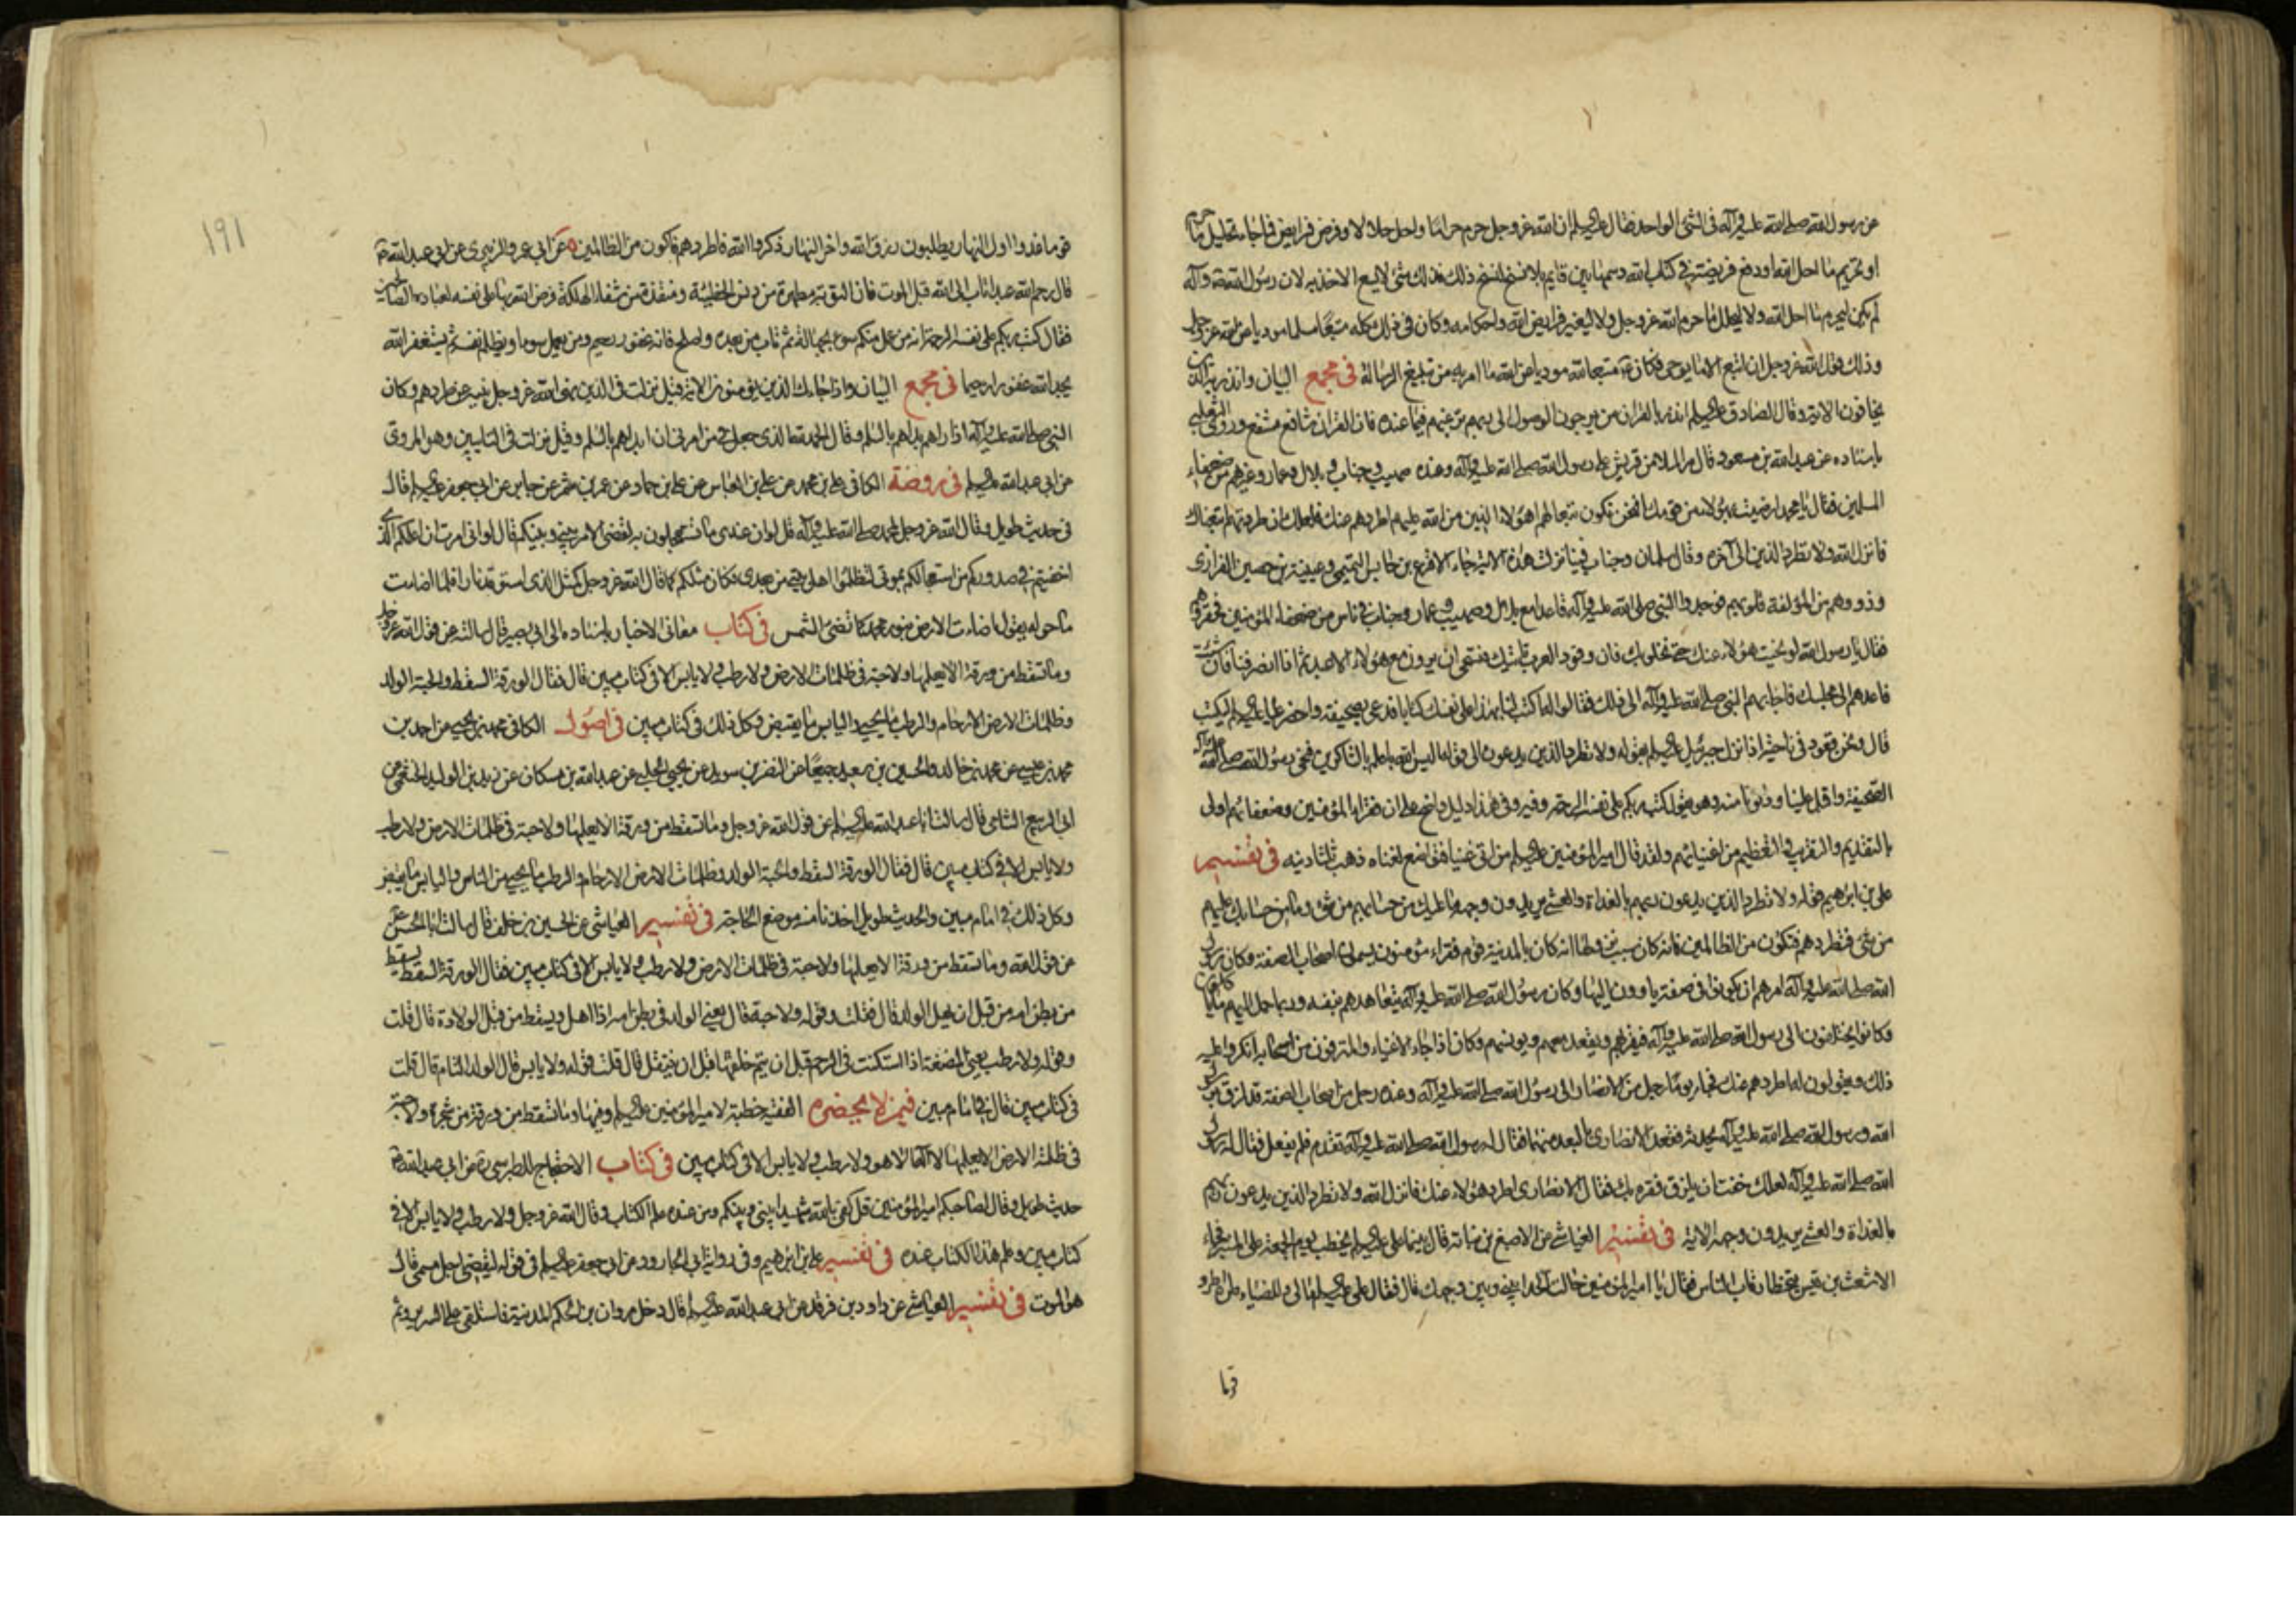 عن رسول الله صلى الله عليه وآله فى الشئ الواحد فقال عليه السلم ان الله عز وجل حرم حراما واحل حلالا وفرض فرايض فما جاء تحليل ما حرم
او تحريم ما احل الله او دفع فريضة فى كتاب الله رسمها بين قايم بلا نسخ نسخ ذلك فذلك شئ لا يسع الاخذ به لان رسول الله صه وآله
لم يكن ليحرم ما احل الله ولا ليحلل ما حرم الله عز وجل ولا ليغير فرايض الله واحكامه وكان فى ذلك كله متبعا مسلما موديا عن الله عز وجل
وذلك قول الله عز وجل ان اتبع الا ما يوحى فكان متبعا لله موديا عن الله ما امر به من تبليغ الرسالة فى مجمع البيان وانذر به الذين
يخافون الاية وقال الصادق عليه السلم انذر بالقران من يرجون الوصول الى ربهم ترغبهم فيما عنده فان القران شافع مشفع وروى الثعلبى
باسناده عن عبد الله بن مسعود قال مر الملا من قريش على رسول الله صلى الله عليه وآله وعنده صهيب وخباب وبلال وعمار وغيرهم من ضعفاء
المسلمين فقال يا محمد ارضيت بهؤلاء من قومك افنحن نكون تبعا لهم اهؤلاء الذين من الله عليهم اطردهم عنك فلعلك ان طردتهم اتبعناك
فانزل الله ولا تطرد الذين الى آخره وقال سلمان وخباب فينا نزلت هذه الاية جاء الاقرع بن حابس التميمى وعيينة بن حصين الفزارى
وذووهم من المؤلفة قلوبهم فوجدوا النبى صلى الله عليه وآله قاعدا مع بلال وصهيب وعمار وخباب فى ناس من ضعفاء المؤمنين فحقروهم
فقالوا يا رسول الله لو نحيت هؤلاء عنك حتى نخلو بك فان وفود العرب تاتيك فنستحى ان يرونا مع هؤلاء الاعبد ثم اذا انصرفنا فان شئت
فاعدهم الى مجلسك فاجابهم النبى صلى الله عليه وآله الى ذلك فقالوا له اكتب لنا بهذا على نفسك كتابا فدعى بصحيفة واحضر عليا عليه السلم ليكتب
قال ونحن قعود فى ناحية اذ نزل جبرئيل عليه السلم بقوله ولا تطرد الذين يدعون الى قوله اليس الله باعلم بالشاكرين فنحى رسول الله صلى الله عليه وآله
الصحيفة واقبل علينا ودنونا منه وهو يقول كتب ربكم على نفسه الرحمة وفيه وفى هذا دليل واضح على ان فقراء المؤمنين وضعفائهم اولى
بالتقديم والتقريب والتعظيم من اغنيائهم ولقد قال امير المؤمنين عليه السلم من اتى غنيا فتواضع لغناه ذهب ثلثا دينه فى تفسير
على بن ابرهيم قوله ولا تطرد الذين يدعون ربهم بالغداة والعشى يريدون وجهه ما عليك من حسابهم من شئ وما من حسابك عليهم
من شئ فتطردهم فتكون من الظالمين فانه كان سبب نزولها انه كان بالمدينة قوم فقراء مؤمنون يسمون اصحاب الصفة وكان رسول
الله صلى الله عليه وآله امرهم ان يكونوا فى صفة ياوون اليها وكان رسول الله صلى الله عليه وآله يتعاهدهم بنفسه وربما حمل اليهم ما ياكلون
وكانوا يختلفون الى رسول الله صلى الله عليه وآله فيقربهم ويقعد معهم ويونسهم وكان اذا جاء الاغنياء والمترفون من اصحابه انكروا عليه
ذلك ويقولون له اطردهم عنك فجاء يوما رجل من الانصار الى رسول الله صلى الله عليه وآله وعنده رجل من اصحاب الصفة قد لزق برسول
الله ورسول الله صلى الله عليه وآله يحدثه فقعد الانصارى بالبعد منهما فقال له رسول الله صلى الله عليه وآله تقدم فلم يفعل فقال له رسول
الله صلى الله عليه وآله لعلك خفت ان يلزق فقره بك فقال الانصارى اطرد هؤلاء عنك فانزل الله ولا تطرد الذين يدعون ربهم
بالغداة والعشى يريدون وجهه الاية فى تفسير العياشى عن الاصبغ بن نباتة قال بينما على عليه السلم يخطب يوم الجمعة على المنبر فجاء
الاشعث بن قيس يتخطا رقاب الناس فقال يا امير المؤمنين حالت الحدا بينى وبين وجهك قال فقال على عليه السلم مالى وللضياء اطرد
قوما
١٩١
قوما غدوا اول النهار يطلبون رزق الله واخر النهار ذكروا الله فاطردهم فاكون من الظالمين عن ابى عمرو الزبيرى عن ابى عبد الله
قال رحم الله عبدا تاب الى الله قبل الموت فان التوبة مطهرة من دنس الخطيئة ومنقذة من شفا الهلكة فرض الله بها على نفسه لعباده الصالحين
فقال كتب ربكم على نفسه الرحمة انه من عمل منكم سوء بجهالة ثم تاب من بعده واصلح فانه غفور رحيم ومن يعمل سوءا او يظلم نفسه ثم يستغفر الله
يجد الله غفورا رحيما فى مجمع البيان واذا جاءك الذين يؤمنون الاية قيل نزلت فى الذين نهى الله عز وجل نبيه عن طردهم وكان
النبى صلى الله عليه وآله اذا راهم بداهم بالسلم وقال الحمد لله الذى جعل فى من امرنى ان ابداهم بالسلم وقيل نزلت فى التايبين وهو المروى
عن ابى عبد الله عليه السلم فى روضة الكافى على بن محمد عن على بن العباس عن على بن حماد عن عمرو بن شمر عن جابر عن ابى جعفر عليه السلم قال
فى حديث طويل وقال الله عز وجل لمحمد صلى الله عليه وآله قل لو ان عندى ما تستعجلون به لقضى الامر بينى وبينكم قال لو انى امرت ان اعلمكم الذى
اخفيتم فى صدوركم من استعجالكم بموتى لتظلموا اهل بيتى من بعدى فكان مثلكم كما قال الله عز وجل كمثل الذى استوقد نارا فلما اضاءت
ما حوله يقول اضاءت الارض بنور محمد كما تضئ الشمس فى كتاب معانى الاخبار باسناده الى ابى بصير قال سالته عن قول الله عز وجل
وما تسقط من ورقة الا يعلمها ولا حبة فى ظلمات الارض ولا رطب ولا يابس الا فى كتاب مبين قال فقال الورقة السقط والحبة الولد
وظلمات الارض الارحام والرطب ما يحيى واليابس ما يقبض وكل ذلك فى كتاب مبين فى اصول الكافى محمد بن يحيى عن احمد بن
محمد بن عيسى عن محمد بن خالد والحسين بن سعيد جميعا عن النضر بن سويد عن يحيى الحلبى عن عبد الله بن مسكان عن زيد بن الوليد الخثعمى عن
ابى الربيع الشامى قال سالت ابا عبد الله عليه السلم عن قول الله عز وجل وما تسقط من ورقة الا يعلمها ولا حبة فى ظلمات الارض ولا رطب
ولا يابس الا فى كتاب مبين قال فقال الورقة السقط والحبة الولد وظلمات الارض الارحام والرطب ما يحيى من الناس واليابس ما يقبض
وكل ذلك فى امام مبين والحديث طويل اخذنا منه موضع الحاجة فى تفسير العياشى عن الحسين بن خلف قال سالت ابا الحسن
عن قول الله وما تسقط من ورقة الا يعلمها ولا حبة فى ظلمات الارض ولا رطب ولا يابس الا فى كتاب مبين فقال الورقة السقط يسقط
من بطن امه من قبل ان يهل الولد قال فقلت وقوله ولا حبة قال يعنى الولد فى بطن امه اذا اهل ويسقط من قبل الولادة قال قلت
وقوله ولا رطب يعنى المضغة اذا استكنت فى الرحم قبل ان يتم خلقها قبل ان ينتقل قال قلت قوله ولا يابس قال الولد التام قال قلت
فى كتاب مبين قال فى امام مبين فيمن لا يحضره الفقيه خطبة لامير المؤمنين عليه السلم وفيها وما تسقط من ورقة من شجرة ولا حبة
فى ظلمة الارض الا يعلمها لا اله الا هو ولا رطب ولا يابس الا فى كتاب مبين فى كتاب الاحتجاج للطبرسى ره عن ابى عبد الله
حديث طويل وقال لصاحبكم امير المؤمنين قل كفى بالله شهيدا بينى وبينكم ومن عنده علم الكتاب وقال الله عز وجل ولا رطب ولا يابس الا فى
كتاب مبين وعلم هذا الكتاب عنده فى تفسير على بن ابرهيم وفى رواية ابى الجارود عن ابى جعفر عليه السلم فى قوله ليقضى اجل مسمى قال
هو الموت فى تفسير العياشى عن داود بن فرقد عن ابى عبد الله عليه السلم قال دخل مروان بن الحكم المدينة فاستلقى على السرير وثم